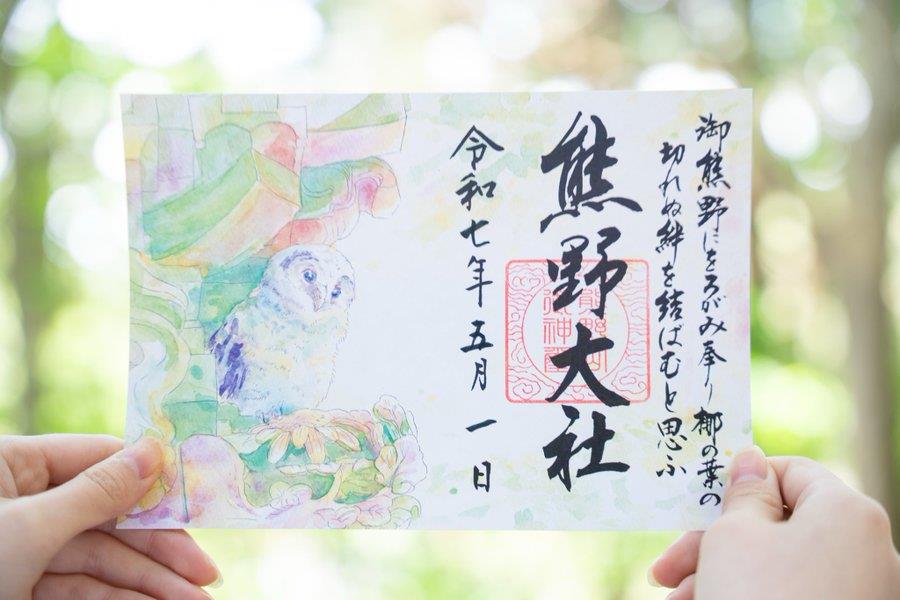 御熊野にをろがみ奉り椰の葉の
切れぬ絆を結ばむと思ふ
熊野大社
令和七年五月一日